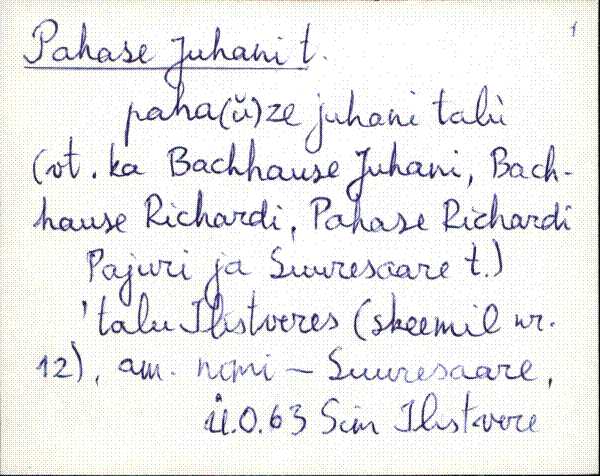 1
Pahase Juhani t.
paha(ŭ)ze juhani talu
(vt. ka Bachhause Juhani, Bach-
hause Richardi, Pahase Richardi
Pajuri ja Suuresaare t.)
'talu Ilistveres (skeemil nr.
12), am. nimi – Suuresaare,
Ü.O.63 Sim Ilistvere